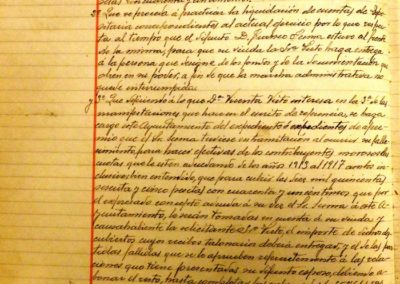 2º Que se proceda á practicar la liquidación de cuentas de depo-
sitaría correspondientes al actual ejercicio por lo que respec-
ta al tiempo que el difunto D. Serma estuvo al frente
de la misma, para que su viuda la Sra Visto haga entrega
á la persona que designe de los fondos y de la documentación que
obren en su poder, á fin de que la marcha administrativa no
quede interrumpida
y 3º Que accediendo á lo que Dª Vicenta Visto interesa en la 3ª de las
manifestaciones que hace en el escrito de referencia, se haga
cargo este Ayuntamiento del expediente ó expedientes de apre-
mio que el Sr Serma tuviese en tramitación al ocurrir su falle-
cimiento para hacer efectivas de los contribuyentes morosos las
cuotas que le esten adeudando de los años 1913 al 1917 ambos in-
clusive, bien entendido, que para cubrir las seis mil quinientas
sesenta y cinco pesetas con cuarenta y un centimos que por
el expresado concepto adeuda á su vez el Sr Serma á este Ay-
untamiento, le serán tomadas en cuenta á su viuda y
causahabiente la solicitante Sra Visto, el importe de dichos des-
cubiertos cuyos recibos talonarios deberá entregar, y el de las par-
tidas fallidas que se le aprueben referentes á las rela-
ciones que tiene presentadas su difunto esposo, debiendo a-
bonar el resto, hasta completar